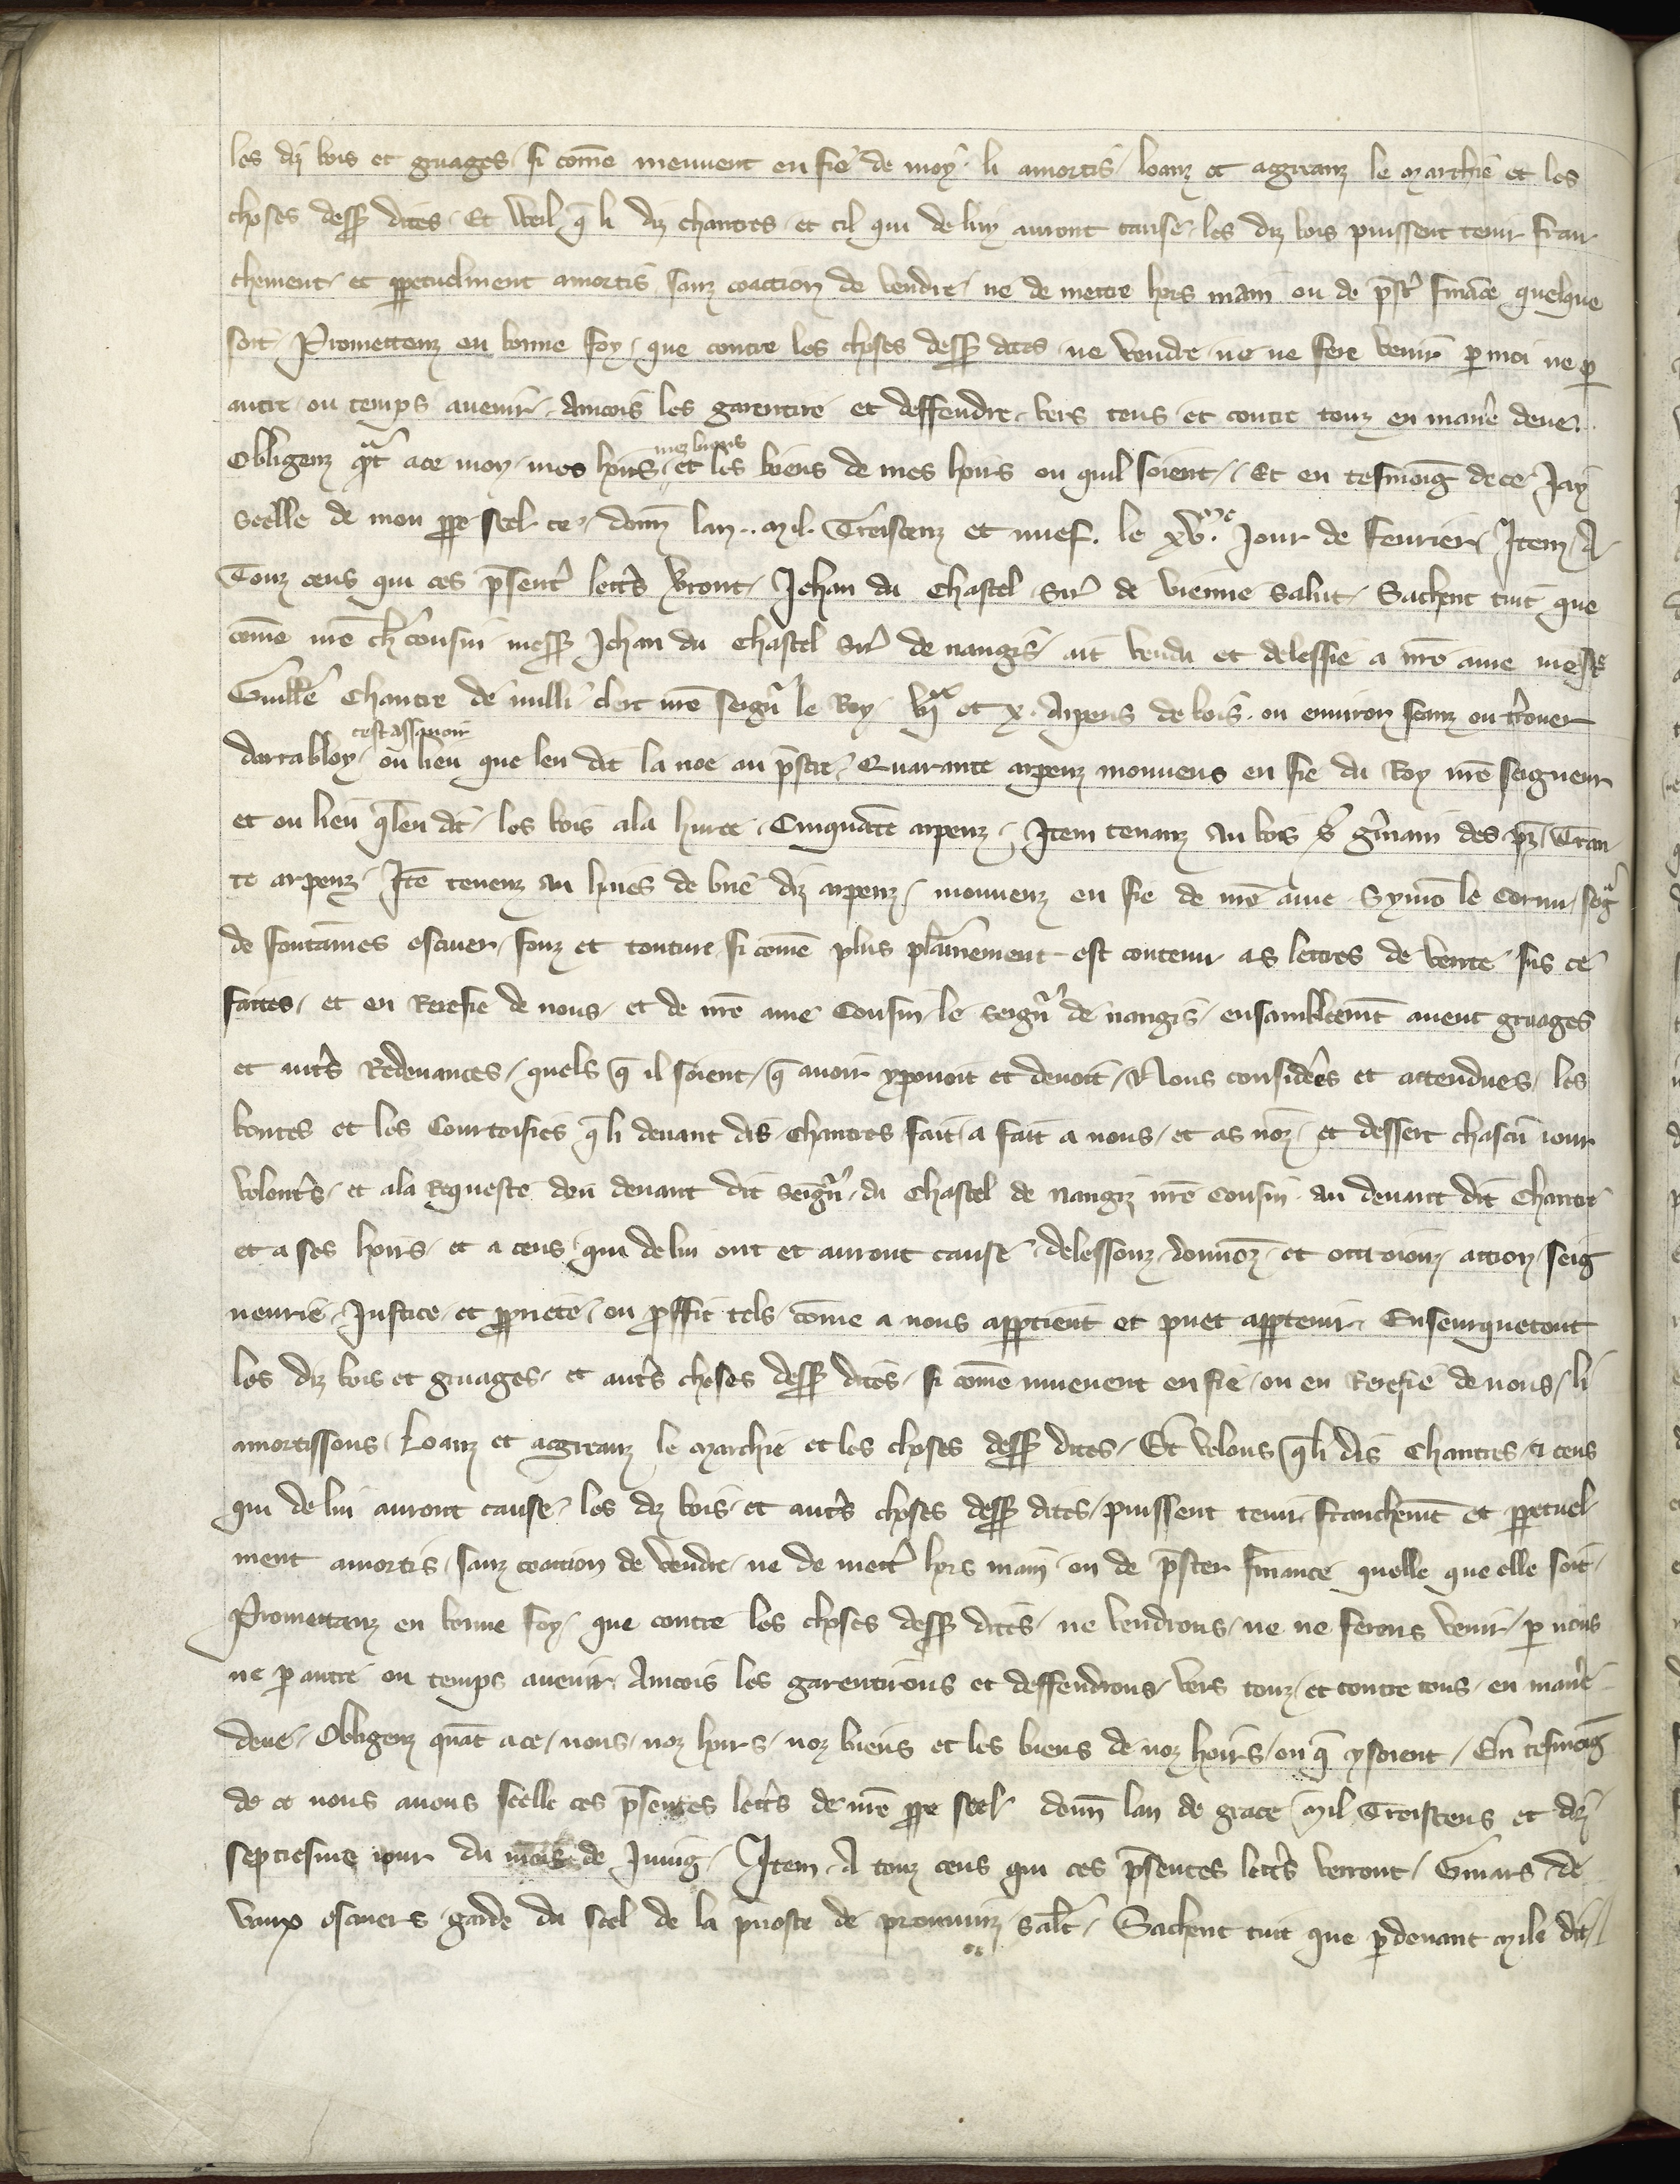 les diz bois et gruages si come meuuent en fie de moy li amortis loanz et aggreanz le marchie et les
choses dess dites Et weil q li diz chantres et cil qui de luy auront cause les diz bois puissent tenir fran
chement et ppetuelment amortis sanz coaction de vendre ne de mettre hors main ou de pster finace quelque
soit Promettenz en bonne foy que contre les choses dess dites ne vendre ne ne fere venir p moi ne p
autre ou temps auenir Ancois les garentire et deffendre vers tous et contre touz en manie deue
Obligenz qat a ce moy mes hoirs mez biens et les biens de mes hoirs ou quil soient Et en tesmoig de ce Jay
seelle de mon ppe seel ce donn lan mil Treiscenz et nuef le xv me Jour de Feurier Item A
Touz ceus qui ces psent lettrs vront Jehan du Chastel Sir de vienne salut Sachent tuit que
come nre ch cousin mess Jehan du Chastel Sir de nangis ait vendu et delessie a nre ame mess
Guille Chantre de milli clerc nre seign le Roy vij xx et x Arpens de bois ou enuiron seanz ou trouer
darrabloy cest assauoir ou lieu que len dit la noe au pstre Quarante arpenz mouuens en fie du Roy nre seigneur
et ou lieu q len dit les bois ala huree Cinquate arpenz Item tenanz au bois s gmain des pz Tran
te arpenz Ite tenenz au hues de brie diz arpenz mouuenz en fie de nre ame Symo le Cornu seig
de fontaines escuier fonz et touture si come plus plainement est contenu as lettres de vente sus ce
faites et en Rerefie de nous et de nre ame Cousin le seign de nangis ensamblemt auent gruages
et autrs Redeuances quels q il soient q auoir y pouoit et deuoit Nous considers et attendues les
bontes et les Courtoisies q li deuant dis Chantres fait a fait a nous et as noz et dessert chascu iour
volontrs et ala Requeste dou deuant dit seign du Chastel de nangiz nre Cousin au deuant dit Chantre
et a ses hoirs et a ceus qui de lui ont et auront cause delessonz donnoz et ottroionz action seig
neurie Justice et ppriete ou proffit tels come a nous apptient et puet apptenir Enseurquetout
les diz bois et gruages et autrs choses dess dites si come muuent en fie ou en Rerefie de nous li
amortissons Loanz et aggreanz le marchie et les choses dess dites Et volons q li dis Chantres et ceus
qui de lui auront cause les diz bois et autrs choses dess dites puissent tenir franchemt et ppetuel
ment amortis sanz coaction de vendre ne de mettr hors main ou de pster finance quelle que elle soit
Promettanz en bonne foy que contre les choses dess dites ne vendrons ne ne ferons venir p nous
ne p autre ou temps auenir Ancois les garentirons et deffendrons vers touz et contre tous en manie
deue Obligenz quat a ce nous noz hoirs noz biens et les biens de noz hoirs ou q y soient En tesmoig
de ce nous auons seelle ces psentes lettrs de nre ppe seel donn lan de grace mil Treiscens et diz
septiesme iour du mois de Juing Item A touz ceus qui ces psentes lettrs verront Guiars de
vaux escuiers garde du seel de la puoste de prouuinz salt Sachent tuit que p deuant mile dit